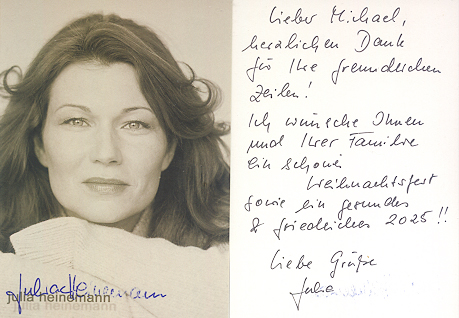 Julia Heinemann
julia heinemann
Lieber Michael,
herzlichen Dank
für Ihre freundlichen
Zeilen!
Ich wünsche Ihnen
und Ihrer Familie
ein schönes
Weihnachtsfest
sowie ein gesundes
& friedliches 2025!!
Liebe Grüße
Julia